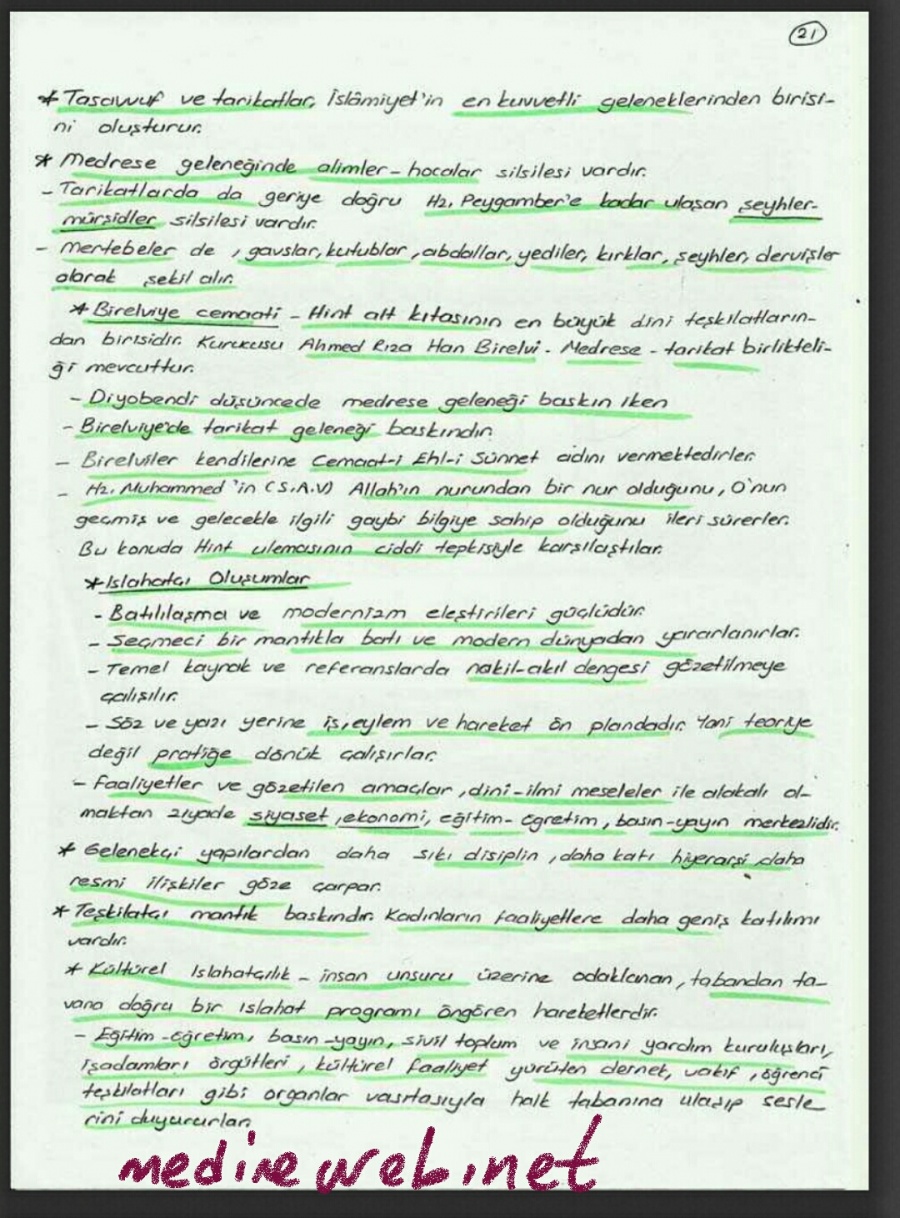 21
* Tasavvuf ve tarikatlar, İslâmiyet'in en kuvvetli geleneklerinden birisi-
ni oluşturur.
* Medrese geleneğinde alimler-hocalar silsilesi vardır.
- Tarikatlarda da geriye doğru Hz. Peygamber'e kadar ulaşan şeyhler-
mürşidler silsilesi vardır.
- Mertebeler de, gavslar, kutublar, abdallar, yediler, kırklar, şeyhler, dervişler
olarak şekil alır.
* Birelviye cemaati - Hint alt kıtasının en büyük dini teşkilatların-
dan birisidir. Kurucusu Ahmed Rıza Han Birelvi. Medrese - tarikat birlikteli-
ği mevcuttur.
- Diyobendi düşüncede medrese geleneği baskın iken
- Birelviye'de tarikat geleneği baskındır.
- Birelviler kendilerine Cemaat-i Ehl-i Sünnet adını vermektedirler.
- Hz. Muhammed'in (S.A.V) Allah'ın nurundan bir nur olduğunu, O'nun
geçmiş ve gelecekle ilgili gaybi bilgiye sahip olduğunu ileri sürerler.
Bu konuda Hint ulemasının ciddi tepkisiyle karşılaştılar.
* Islahatçı Oluşumlar
- Batılılaşma ve modernizm eleştirileri güçlüdür.
- Seçmeci bir mantıkla batı ve modern dünyadan yararlanırlar.
- Temel kaynak ve referanslarda nakil-akıl dengesi gözetilmeye
çalışılır.
- Söz ve yazı yerine iş, eylem ve hareket ön plandadır. Yani teoriye
değil pratiğe dönük çalışırlar.
- Faaliyetler ve gözetilen amaçlar, dini-ilmi meseleler ile alakalı ol-
maktan ziyade siyaset, ekonomi, eğitim-öğretim, basın-yayın merkezlidir.
* Gelenekçi yapılardan daha sıkı disiplin, daha katı hiyerarşi, daha
resmi ilişkiler göze çarpar.
* Teşkilatçı mantık baskındır. Kadınların faaliyetlere daha geniş katılımı
vardır.
* Kültürel Islahatçılık - insan unsuru üzerine odaklanan, tabandan ta-
vana doğru bir ıslahat programı öngören hareketlerdir.
- Eğitim-öğretim, basın-yayın, sivil toplum ve insani yardım kuruluşları,
işadamları örgütleri, kültürel faaliyet yürüten dernek, vakıf, öğrenci
teşkilatları gibi organlar vasıtasıyla halk tabanına ulaşıp sesle
rini duyururlar.
medineweb.net